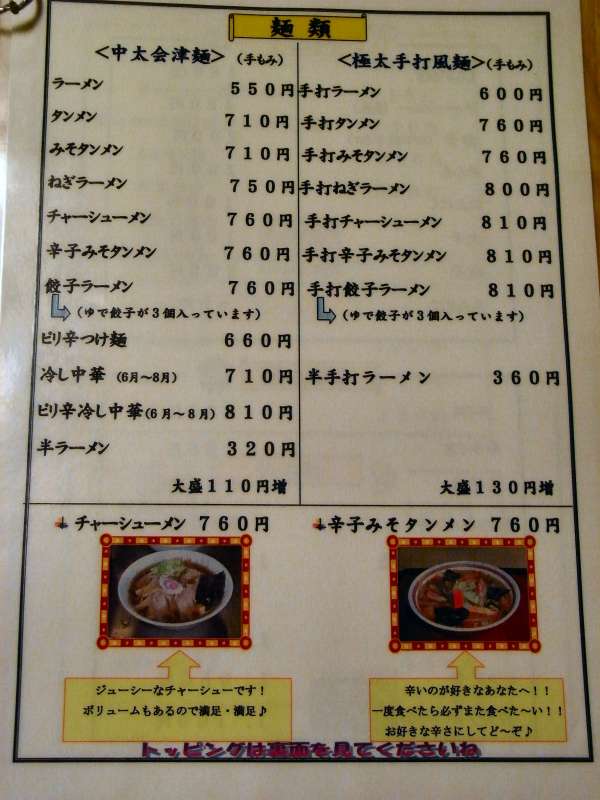 麺類
<中太会津麺>(手もみ)
ラーメン 550円
タンメン 710円
みそタンメン 710円
ねぎラーメン 750円
チャーシューメン 760円
辛子みそタンメン 760円
餃子ラーメン 760円
(ゆで餃子が3個入っています)
ピリ辛つけ麺 660円
冷し中華 (6月〜8月) 710円
ピリ辛冷し中華(6月〜8月) 810円
半ラーメン 320円
大盛110円増
<極太手打風麺>(手もみ)
手打ラーメン 600円
手打タンメン 760円
手打みそタンメン 760円
手打ねぎラーメン 800円
手打チャーシューメン 810円
手打辛子みそタンメン 810円
手打餃子ラーメン 810円
(ゆで餃子が3個入っています)
半手打ラーメン 360円
大盛130円増
チャーシューメン 760円
ジューシーなチャーシューです!
ボリュームもあるので満足・満足♪
辛子みそタンメン 760円
辛いのが好きなあなたへ!!
一度食べたら必ずまた食べた〜い!!
お好きな辛さにしてど〜ぞ♪
トッピングは裏面を見てくださいね